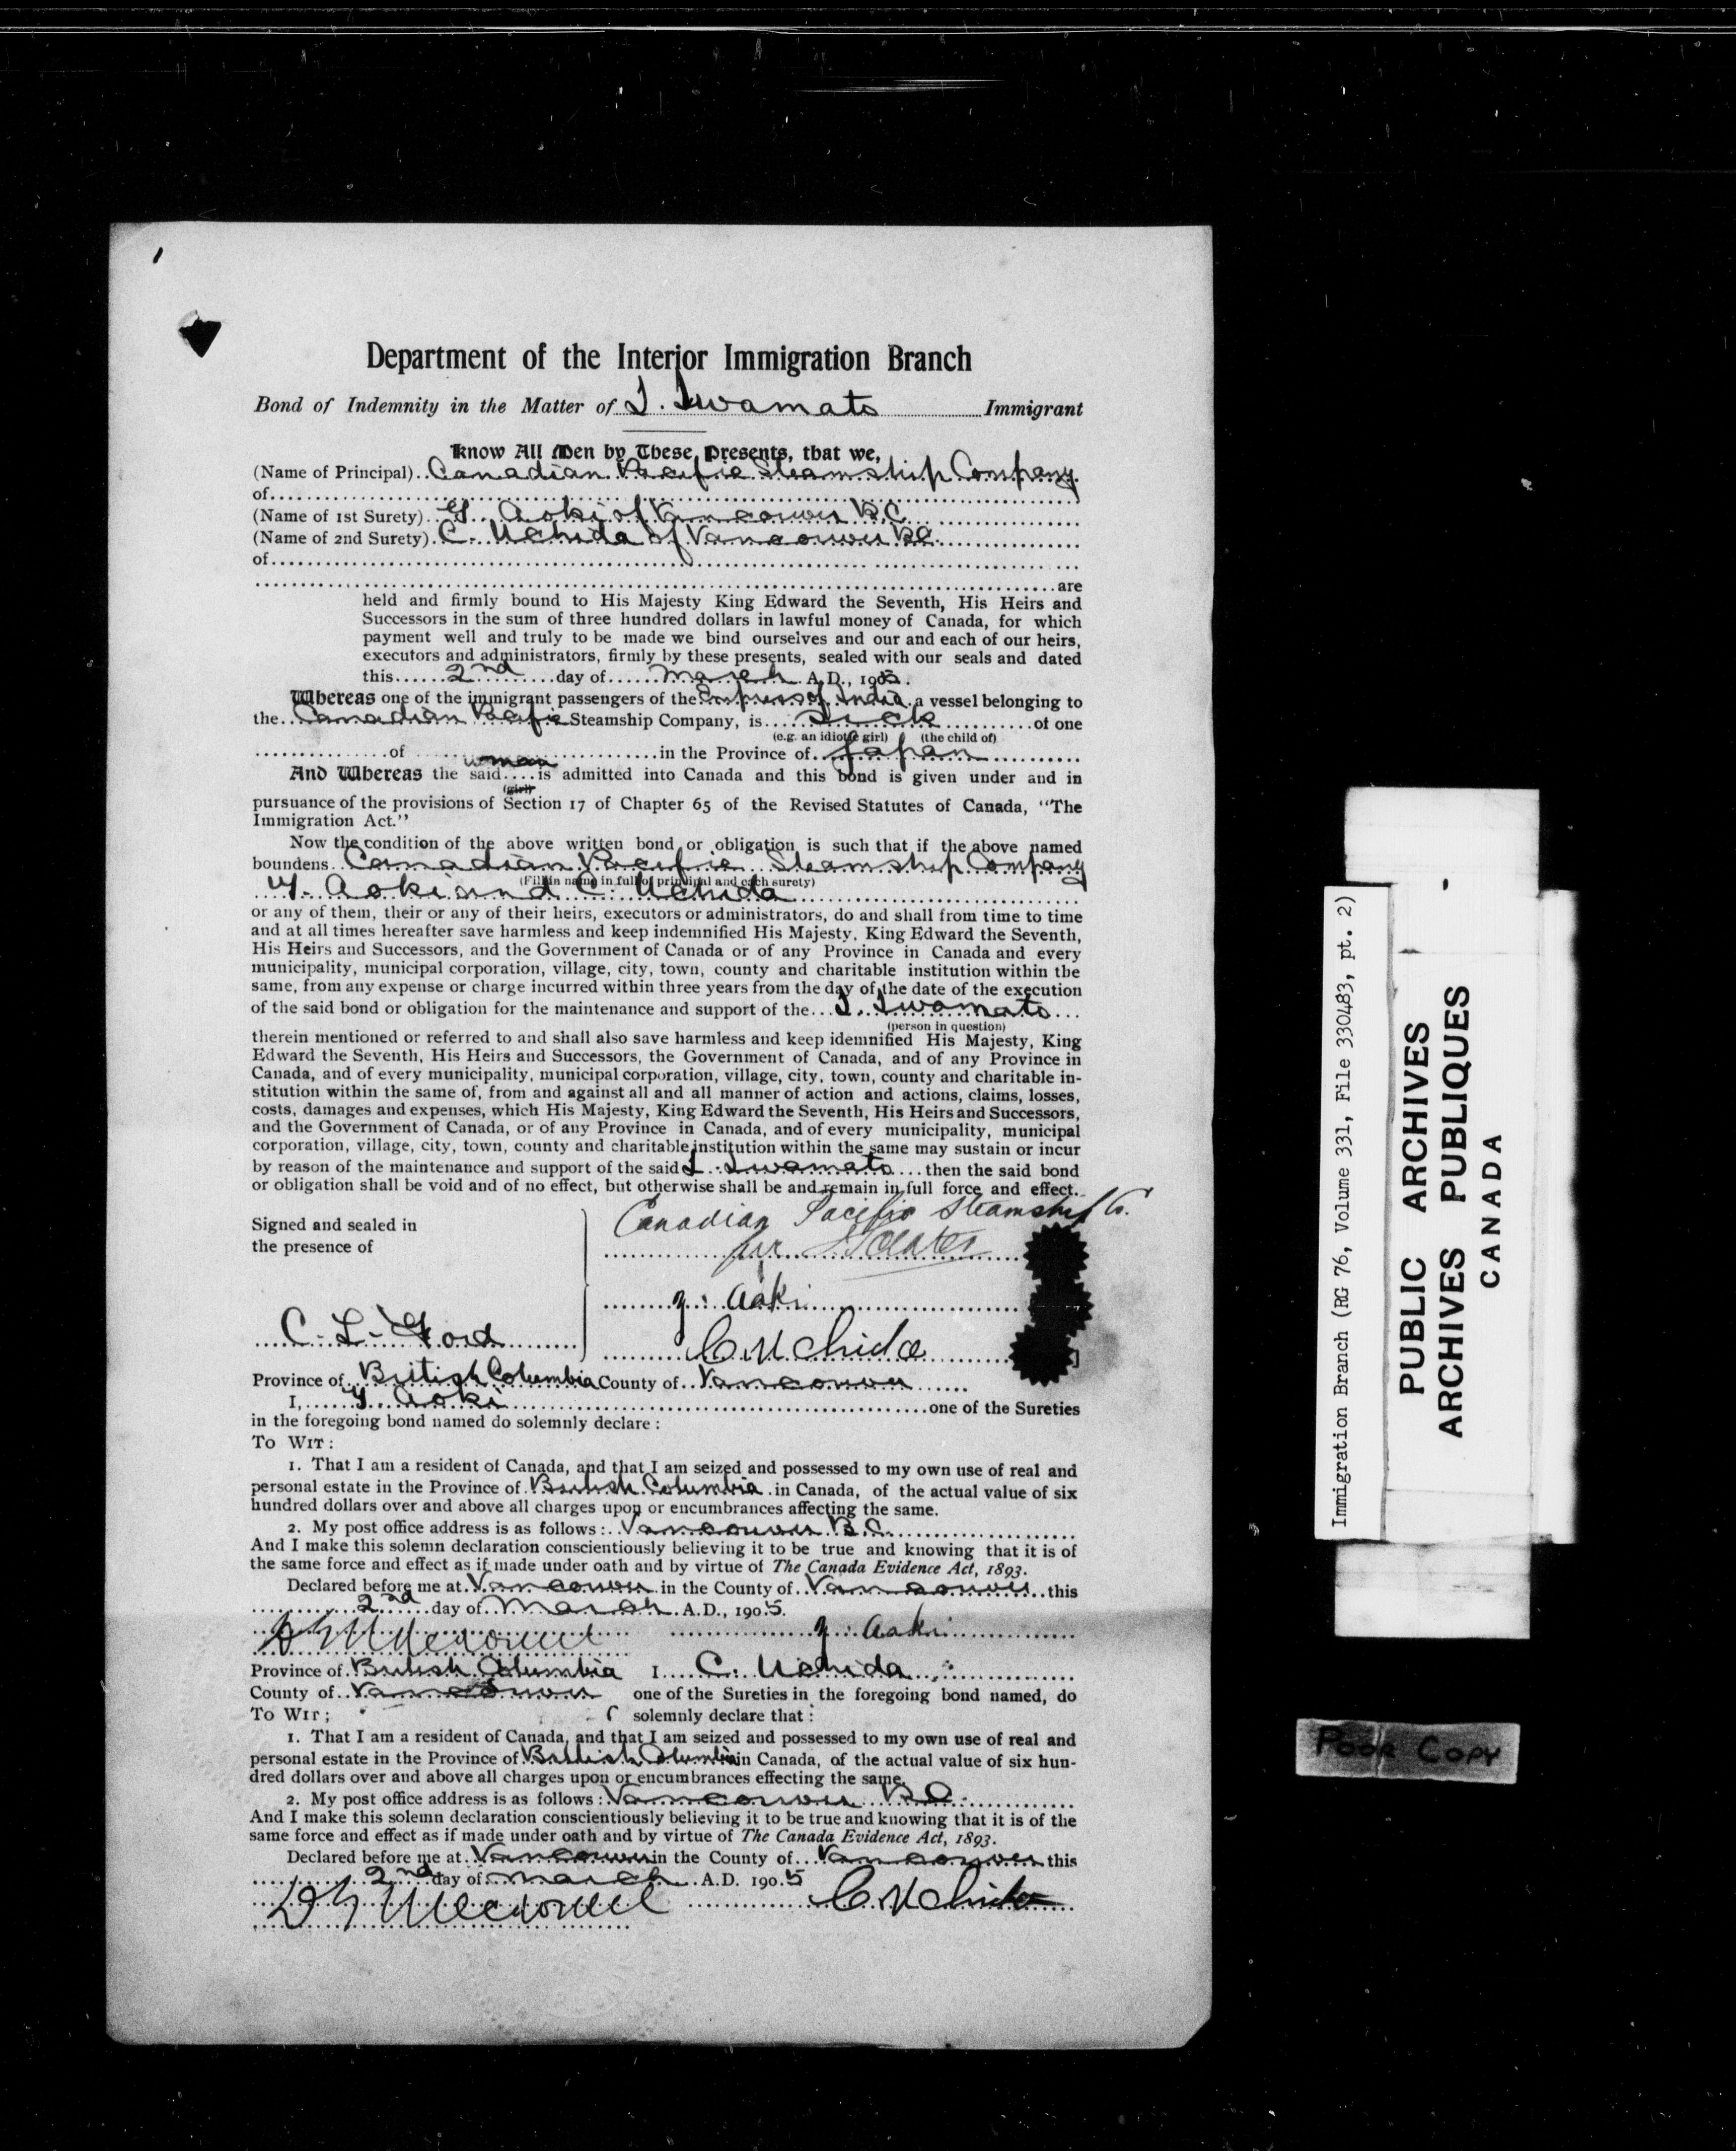 Department of the Interior Immigration Branch
Bond of Indemnity in the Matter of I. Iwamato Immigrant
Know All Men by These Presents, that we,
(Name of Principal) Canadian Pacific Steamship Company
of
(Name of 1st Surety) Y. Aoki of Vancouver B.C.
(Name of 2nd Surety) C. Uchida of Vancouver B.C.
of
are
held and firmly bound to His Majesty King Edward the Seventh, His Heirs and
Successors in the sum of three hundred dollars in lawful money of Canada, for which
payment well and truly to be made we bind ourselves and our and each of our heirs,
executors and administrators, firmly by these presents, sealed with our seals and dated
this 2nd day of March A.D., 1905.
Whereas one of the immigrant passengers of the Empress of India a vessel belonging to
the Canadian Pacific Steamship Company, is Sick of one
(e.g. an idiotic girl) (the child of)
of in the Province of Japan
woman
And Whereas the said is admitted into Canada and this bond is given under and in
(girl)
pursuance of the provisions of Section 17 of Chapter 65 of the Revised Statutes of Canada, "The
Immigration Act."
Now the condition of the above written bond or obligation is such that if the above named
boundens Canadian Pacific Steamship Company
(Fill in name in full of principal and each surety)
Y. Aoki and C. Uchida
or any of them, their or any of their heirs, executors or administrators, do and shall from time to time
and at all times hereafter save harmless and keep indemnified His Majesty, King Edward the Seventh,
His Heirs and Successors, and the Government of Canada or of any Province in Canada and every
municipality, municipal corporation, village, city, town, county and charitable institution within the
same, from any expense or charge incurred within three years from the day of the date of the execution
of the said bond or obligation for the maintenance and support of the I. Iwamato
(person in question)
therein mentioned or referred to and shall also save harmless and keep idemnified His Majesty, King
Edward the Seventh, His Heirs and Successors, the Government of Canada, and of any Province in
Canada, and of every municipality, municipal corporation, village, city, town, county and charitable in-
stitution within the same of, from and against all and all manner of action and actions, claims, losses,
costs, damages and expenses, which His Majesty, King Edward the Seventh, His Heirs and Successors,
and the Government of Canada, or of any Province in Canada, and of every municipality, municipal
corporation, village, city, town, county and charitable institution within the same may sustain or incur
by reason of the maintenance and support of the said I. Iwamato then the said bond
or obligation shall be void and of no effect, but otherwise shall be and remain in full force and effect.
Canadian Pacific Steamship Co.
Signed and sealed in
the presence of
per
Y. Aoki
C. L. Ford
C Uchida
Province of British Columbia County of Vancouver
I, Y. Aoki one of the Sureties
in the foregoing bond named do solemnly declare :
To Wit :
1. That I am a resident of Canada, and that I am seized and possessed to my own use of real and
personal estate in the Province of British Columbia in Canada, of the actual value of six
hundred dollars over and above all charges upon or encumbrances affecting the same.
2. My post office address is as follows : Vancouver B.C.
And I make this solemn declaration conscientiously believing it to be true and knowing that it is of
the same force and effect as if made under oath and by virtue of The Canada Evidence Act, 1893.
Declared before me at Vancouver in the County of Vancouver this
2nd day of March A.D., 1905.
Y. Aoki
Province of British Columbia I C. Uchida
County of Vancouver one of the Sureties in the foregoing bond named, do
To Wit ; solemnly declare that :
1. That I am a resident of Canada, and that I am seized and possessed to my own use of real and
personal estate in the Province of British Columbia in Canada, of the actual value of six hun-
dred dollars over and above all charges upon or encumbrances effecting the same.
2. My post office address is as follows : Vancouver B.C.
And I make this solemn declaration conscientiously believing it to be true and knowing that it is of the
same force and effect as if made under oath and by virtue of The Canada Evidence Act, 1893.
Declared before me at Vancouver in the County of Vancouver this
2nd day of March A.D. 1905
C Uchida
Immigration Branch (RG 76, Volume 331, File 330483, pt. 2)
PUBLIC ARCHIVES
ARCHIVES PUBLIQUES
CANADA
POOR COPY